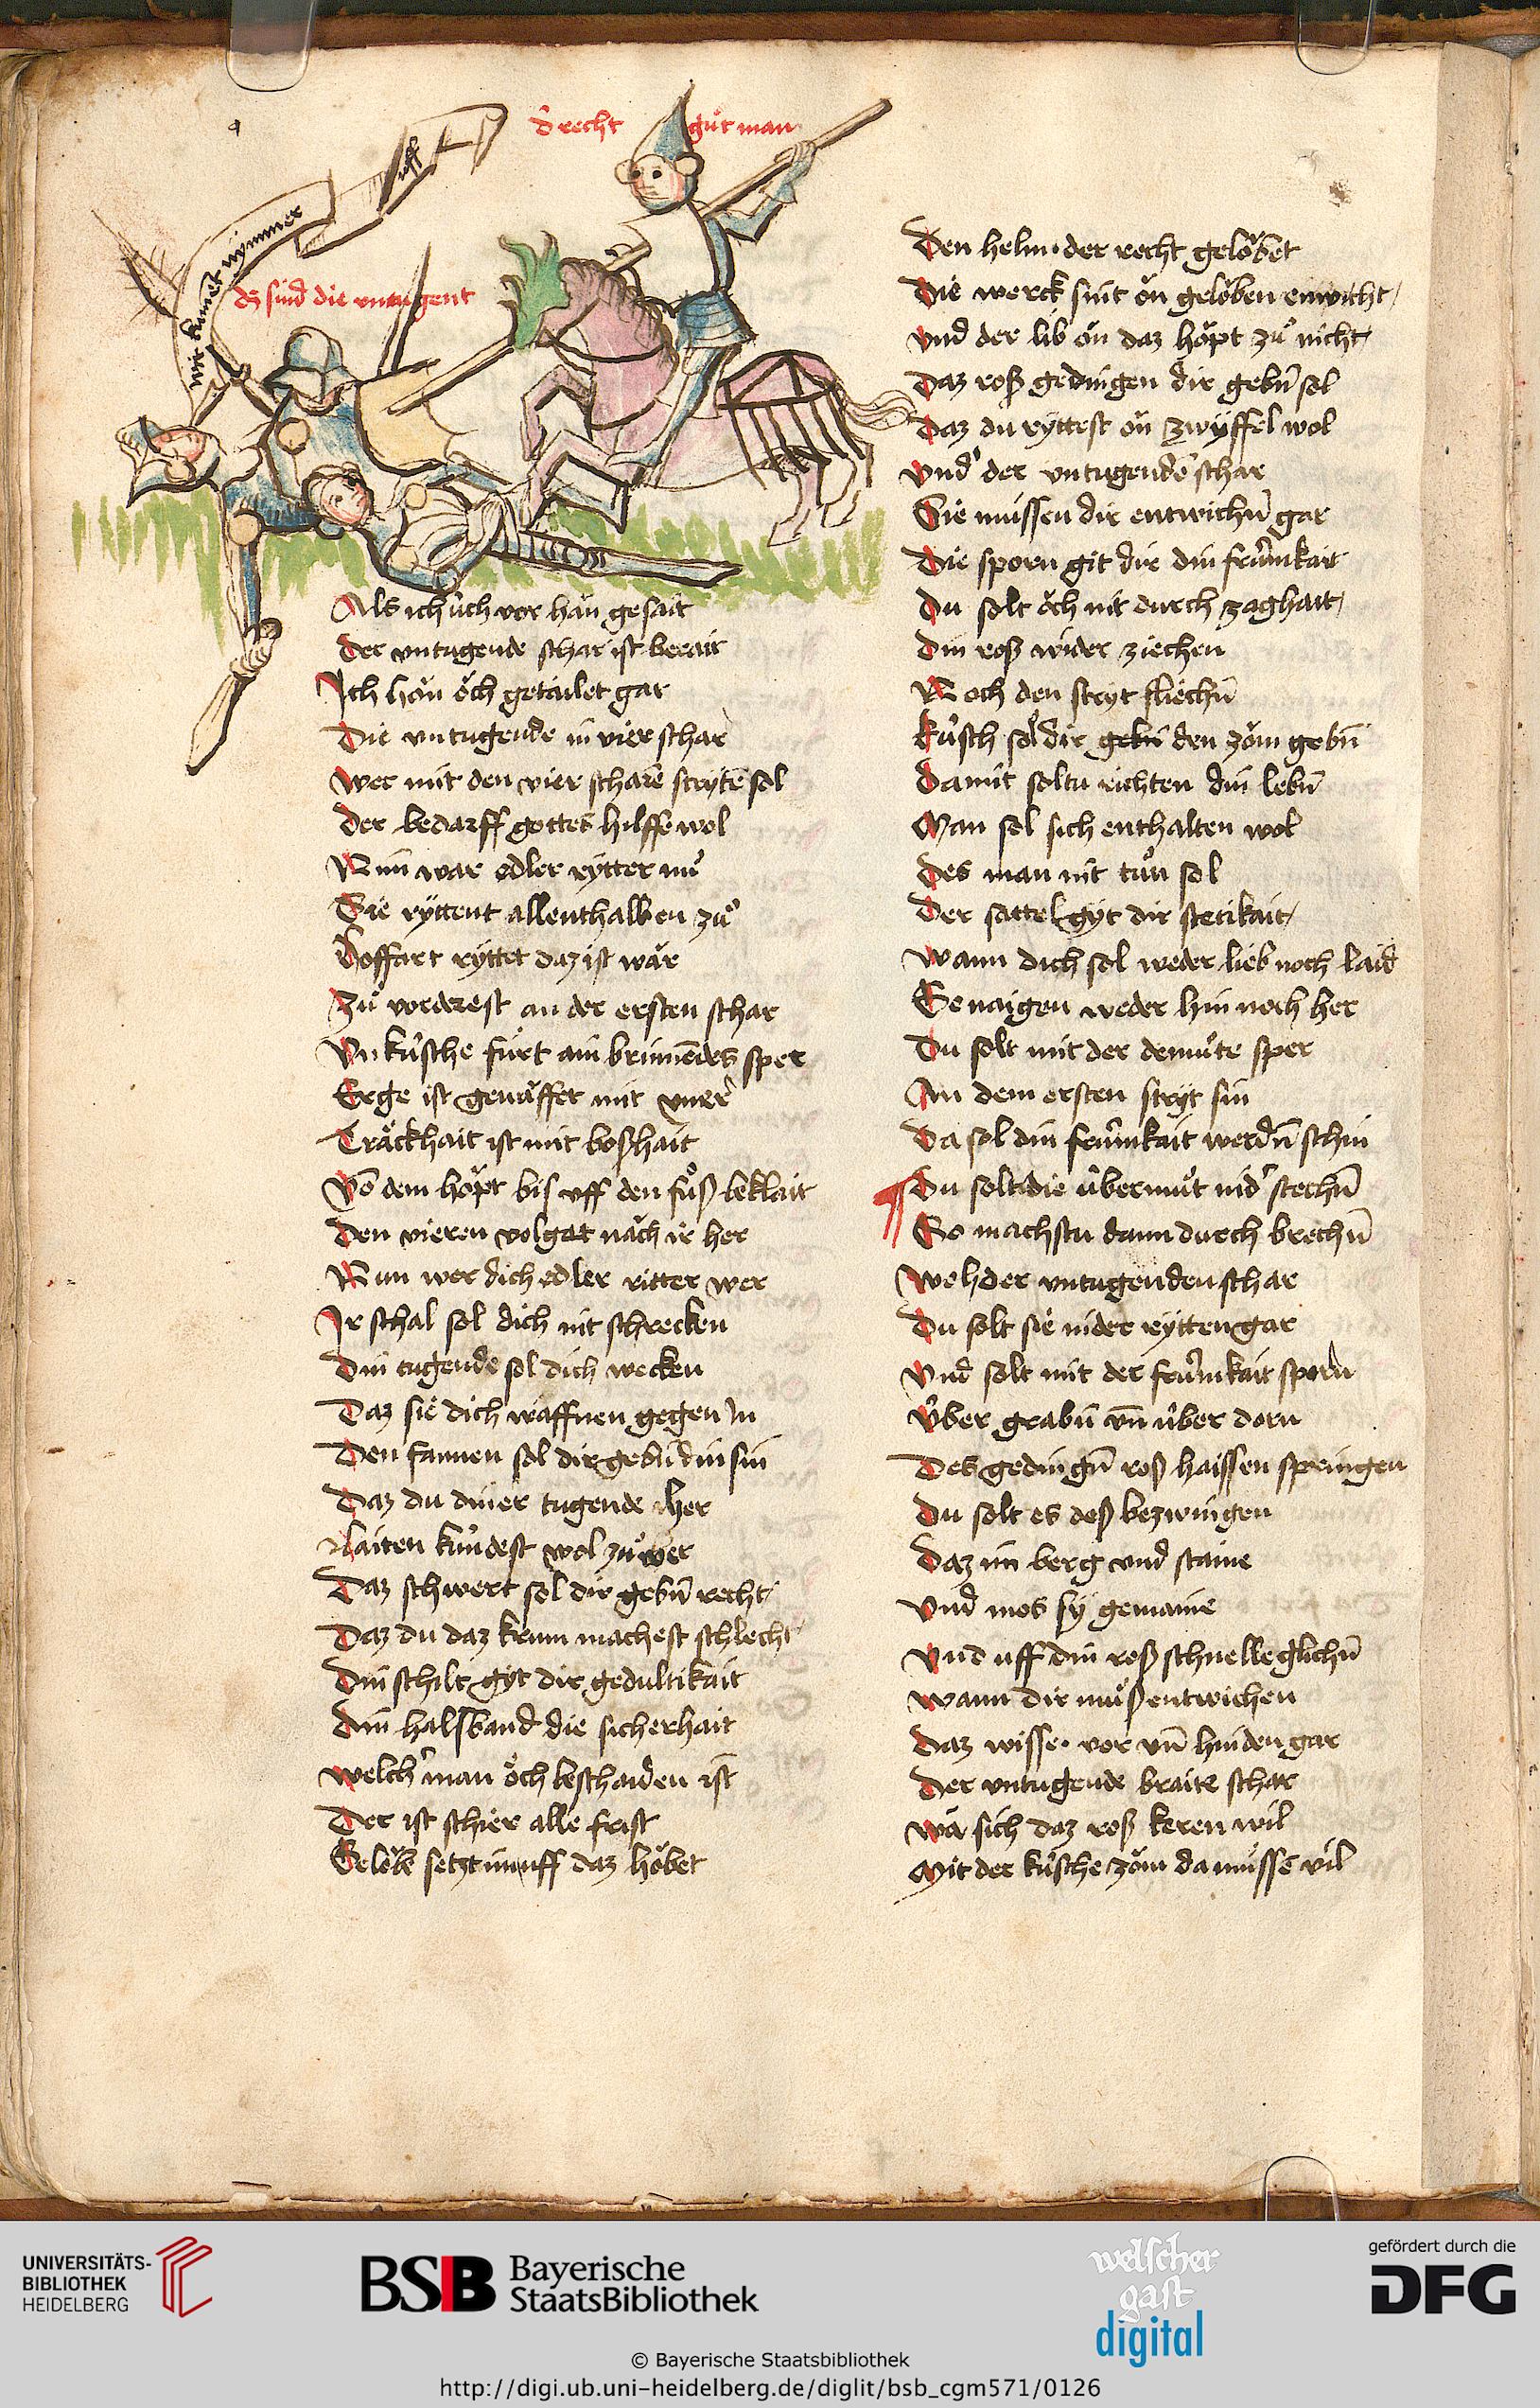 d' recht gůt man
uff
mir kumet nÿmmer
dz sind die vntugent
Als ich ůch vor hǎn gesait
Der vntugende schar ist berait
Ich hǒn ǒch getailet gar
Die vntugende in vier schar
wer mit den vier scharē strÿtē sol
der bedarff gottes hilffe wol
Nim war edler rÿtter nů
Sie rÿttent allenthalben zů
Hoffart rÿttet daz ist wǎr
Zů vordrest an der ersten schar
Vnkůsche fůrt ain brinnēdes sper
Erge ist gewǎffet mit vner'
Trǎckhait ist mit boßhait
Vō dem hǒpt bis vff den fůß beklait
den vieren volgat nǎch ir her
Nun wer dich edler ritter wer
Ir schal sol dich nit schrecken
Din tugende sol dich wecken
Daz sie dich wǎffnen gegen In
Den fannen sol dir gebn̄ din sin
Daz du diner tugende her
Laiten kůndest wol zů wer
Daz schwert sol dir gebn̄ recht
Daz du daz krum machest schlecht
Din schilt gÿt dir gedultikait
Din halsband die sicherhait
welch' man ǒch beschaiden ist
Der ist schier alle frist
Gelǒb setzt im uff daz hǒbet
Den helm · der recht gelǒbet
Die werck sint ǒn gelǒben enwicht
vnd der lib ǒn daz hǒpt zů nicht
Daz roß gedingen dir gebn̄ sol
Daz du rÿttest ǒn zwÿffel wol
vnd' der vntugendē schar
Sie müssen dir entwichn̄ gar
Die sporn git dir din frůmkait
Du solt ǒch nit durch zaghait
Din roß wider ziechen
Noch den strÿt fliechn̄
kůsch sol dir gebn̄ den zǒm gebn̄
Damit soltu richten din lebn̄
Man sol sich enthalten wol
Des man nit tůn sol
Der sattel gÿt dir stetikait
wann dich sol weder lieb noch laid
Genaigen weder hin noch her
Du solt mit der demůte sper
An dem ersten strÿt sin
Da sol din frůmkait werdn̄ schin
Du solt die ůbermůt nid' stechn̄
So machstu dann durch brechn̄
wol der vntugenden schar
Du solt sie nider rÿtten gar
vnd solt mit der frůmkait sporn
ůber grabn̄ vn̄ ůber dorn
Des gedingn̄ roß haissen springen
Du solt es deß bezwingen
Daz im berg vnd staine
vnd mos sÿ gemaine
vnd uff din roß schnelleglichn̄
wann dir můß entwichen
Daz wisse · vor vn̄ hinden gar
Der vntugende braite schar
wa sich daz roß keren wil
Mit der kůsche zǒm da müssē vil
UNIVERSITÄTS-
BIBLIOTHEK
HEIDELBERG
BSB Bayerische
StaatsBibliothek
welscher
gast
digital
gefördert durch die
DFG
© Bayerische Staatsbibliothek
http://digi.ub.uni-heidelberg.de/diglit/bsb_cgm571/0126